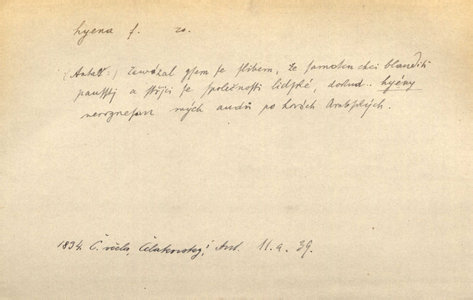 hyena f. zo.
(Antař:) Zawázal gsem se slibem, že samoten chci blauditi
pauští a štjtici se společnosti lidské, dokud .. hyény
neroznesau mých audů po horách Arabských.
1834. Č. včela, Čelakovský, Ant. 11. a. 39.